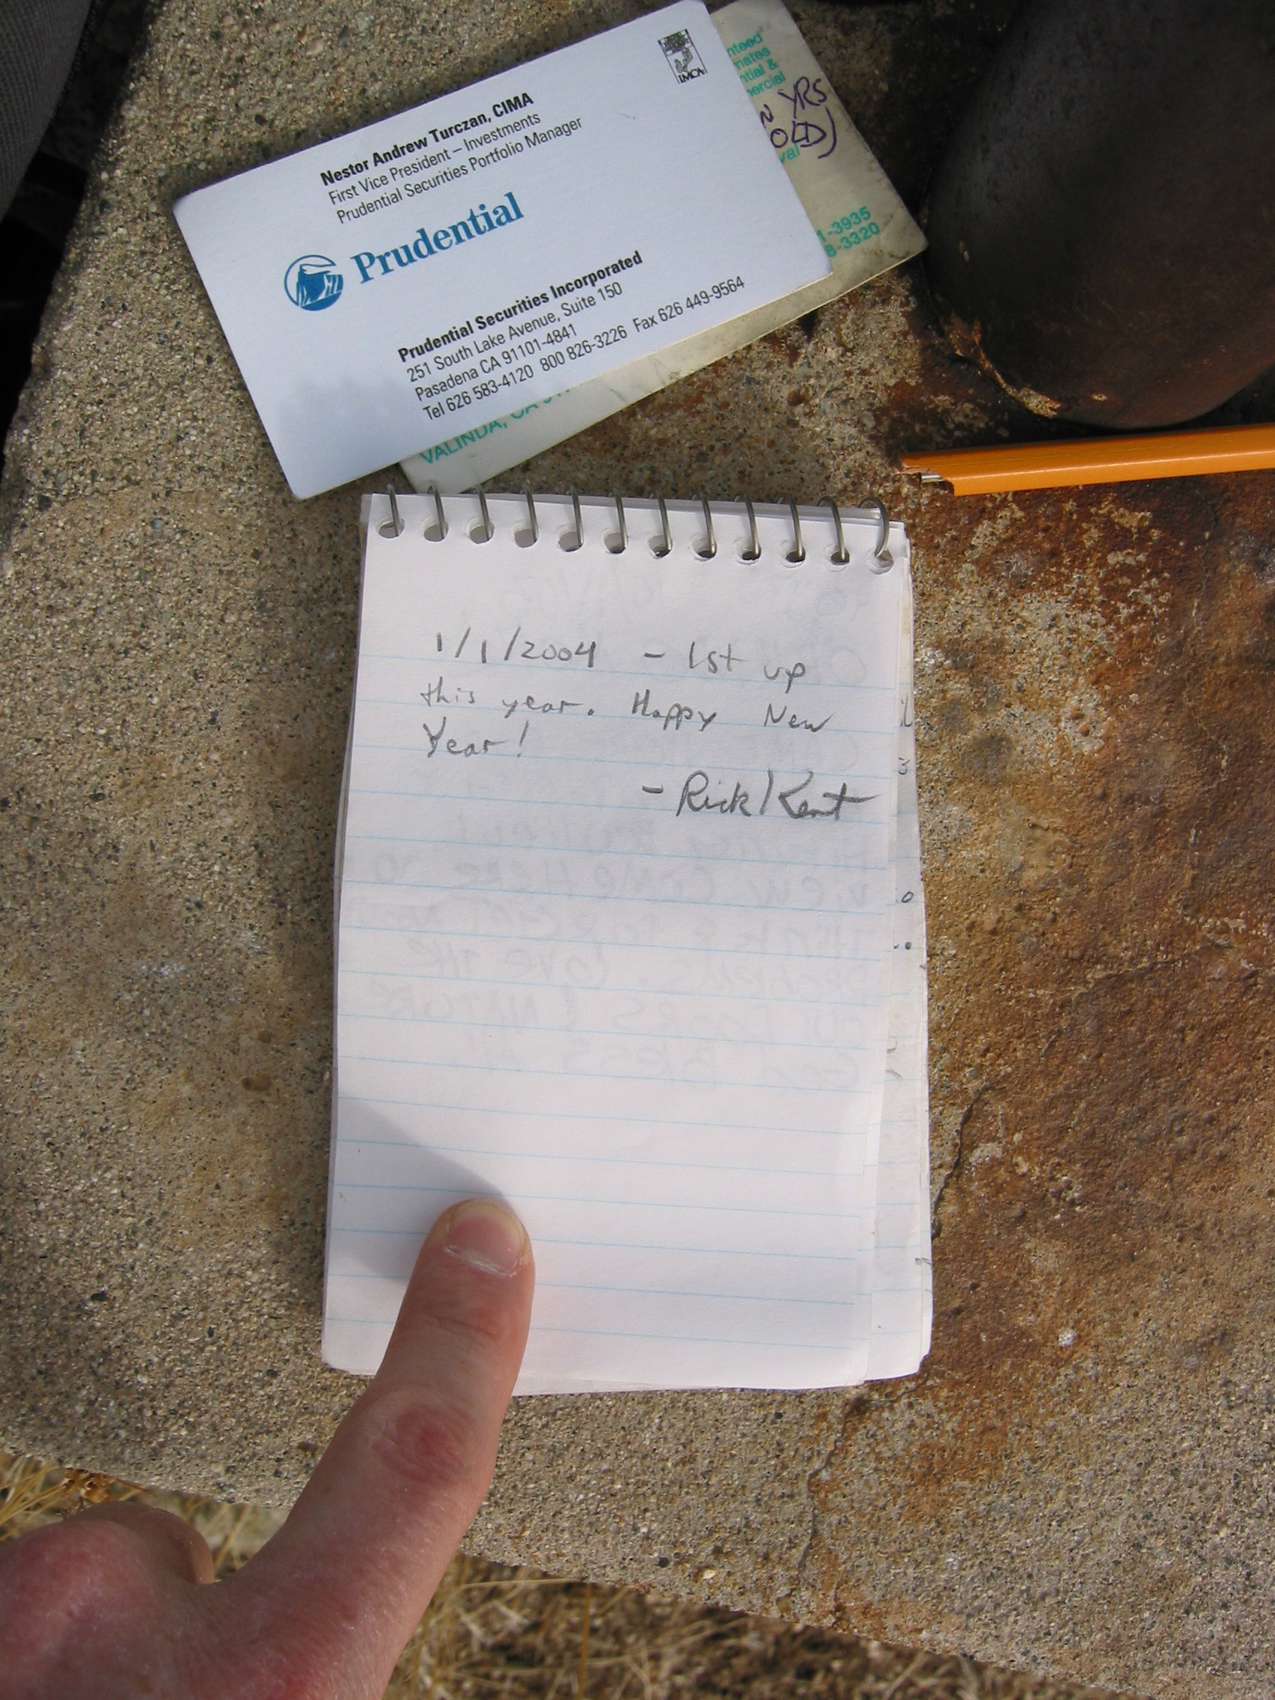 Nestor Andrew Turczan, CIMA
First Vice President – Investments
Prudential Securities Portfolio Manager
IMCA
Prudential
Prudential Securities Incorporated
251 South Lake Avenue, Suite 150
Pasadena CA 91101-4841
Tel 626 583-4120 800 826-3226 Fax 626 449-9564
YRS
OLD)
-3935
-3320
VALINDA, CA
1/1/2004 - 1st up
this year. Happy New
Year!
- Rick/Kent